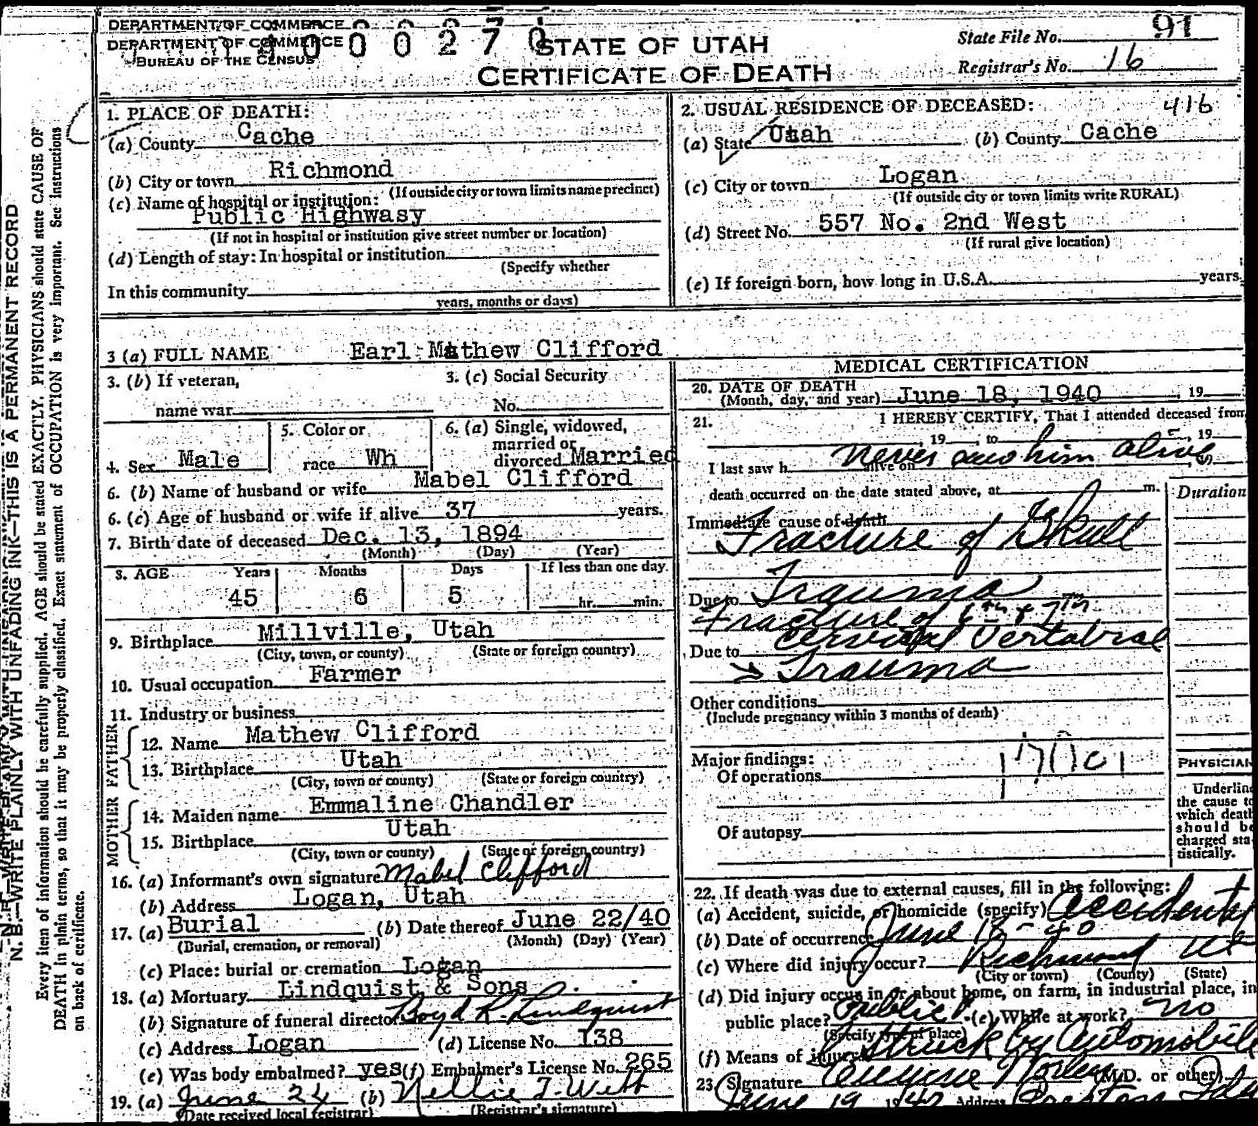 DEPARTMENT OF COMMERCE
DEPARTMENT OF COMMERCE
BUREAU OF THE CENSUS
0 0 0 2 7 0
STATE OF UTAH
CERTIFICATE OF DEATH
State File No. 91
Registrar's No. 16
416
1. PLACE OF DEATH:
(a) County Cache
(b) City or town Richmond
(If outside city or town limits name precinct)
(c) Name of hospital or institution:
Public Highwasy
(If not in hospital or institution give street number or location)
(d) Length of stay: In hospital or institution
(Specify whether
In this community
years, months or days)
2. USUAL RESIDENCE OF DECEASED:
(a) State Utah (b) County Cache
(c) City or town Logan
(If outside city or town limits write RURAL)
(d) Street No. 557 No. 2nd West
(If rural give location)
(e) If foreign born, how long in U.S.A. years.
3 (a) FULL NAME Earl Mathew Clifford
3. (b) If veteran,
name war
3. (c) Social Security
No.
4. Sex Male
5. Color or
race Wh
6. (a) Single, widowed,
married or
divorced Married
6. (b) Name of husband or wife Mabel Clifford
6. (c) Age of husband or wife if alive 37 years.
7. Birth date of deceased Dec. 13, 1894
(Month) (Day) (Year)
8. AGE Years Months Days If less than one day
45 6 5 hr. min.
9. Birthplace Millville, Utah
(City, town, or county) (State or foreign country)
10. Usual occupation Farmer
11. Industry or business
FATHER
12. Name Mathew Clifford
13. Birthplace Utah
(City, town or county) (State or foreign country)
MOTHER
14. Maiden name Emmaline Chandler
15. Birthplace Utah
(City, town or county) (State or foreign country)
16. (a) Informant's own signature Mabel Clifford
(b) Address Logan, Utah
17. (a) Burial (b) Date thereof June 22/40
(Burial, cremation, or removal) (Month) (Day) (Year)
(c) Place: burial or cremation Logan
18. (a) Mortuary Lindquist & Sons
(b) Signature of funeral director Boyd R. Lindquist
(c) Address Logan (d) License No. 138
(e) Was body embalmed? yes (f) Embalmer's License No. 265
19. (a) June 24 (b) Nellie T. Witt
(Date received local registrar) (Registrar's signature)
MEDICAL CERTIFICATION
20. DATE OF DEATH
(Month, day, and year) June 18, 1940, 19
21. I HEREBY CERTIFY, That I attended deceased from
, 19 , to , 19
I last saw h alive on Never saw him alive
death occurred on the date stated above, at m.
Duration
Immediate cause of death
Fracture of Skull
Due to Trauma
Fracture of 6th & 7th
cervical Vertabral
Due to
Trauma
Other conditions
(Include pregnancy within 3 months of death)
Major findings:
Of operations
Of autopsy
PHYSICIAN
Underline
the cause to
which death
should be
charged sta-
tistically.
22. If death was due to external causes, fill in the following:
(a) Accident, suicide, or homicide (specify) Accidental
(b) Date of occurrence June 18-40
(c) Where did injury occur? Richmond Ut
(City or town) (County) (State)
(d) Did injury occur in or about home, on farm, in industrial place, in
public place? Public (e) While at work? No
(Specify type of place)
(f) Means of injury Struck by Automobile
23. Signature (M.D. or other)
June 19 1940 Address Preston Ida
N. B.—WRITE PLAINLY WITH UNFADING INK—THIS IS A PERMANENT RECORD
Every item of information should be carefully supplied. AGE should be stated EXACTLY. PHYSICIANS should state CAUSE OF
DEATH in plain terms, so that it may be properly classified. Exact statement of OCCUPATION is very important. See instructions
on back of certificate.